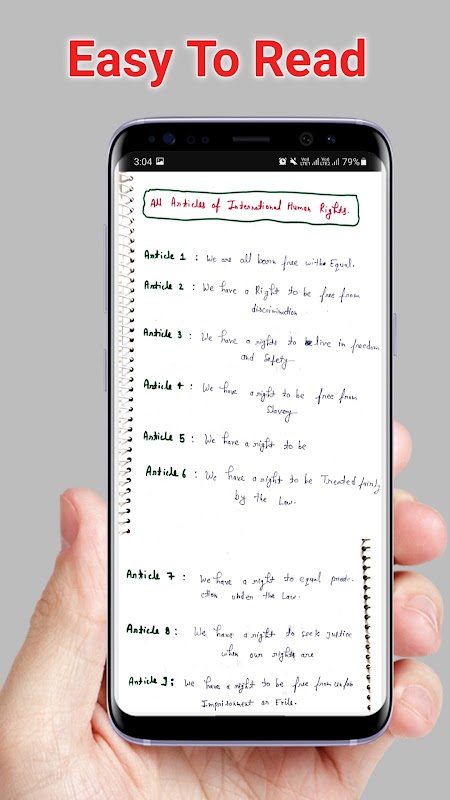 Easy To Read
3:04
79%
All Articles of International Human Rights.
Article 1 : We are all born free with Equal.
Article 2 : We have a Right to be free from
discrimination
Article 3 : We have a rights to live in freedom
and Safety
Article 4 : We have a right to be free from
Slavery
Article 5 : We have a right to be
Article 6 : We have a right to be Treated fairly
by the Law.
Article 7 : We have a right to equal prote-
ction under the Law.
Article 8 : We have a right to seek justice
when our rights are
Article 9 : We have a right to be free from
Imprisonment or Exile.